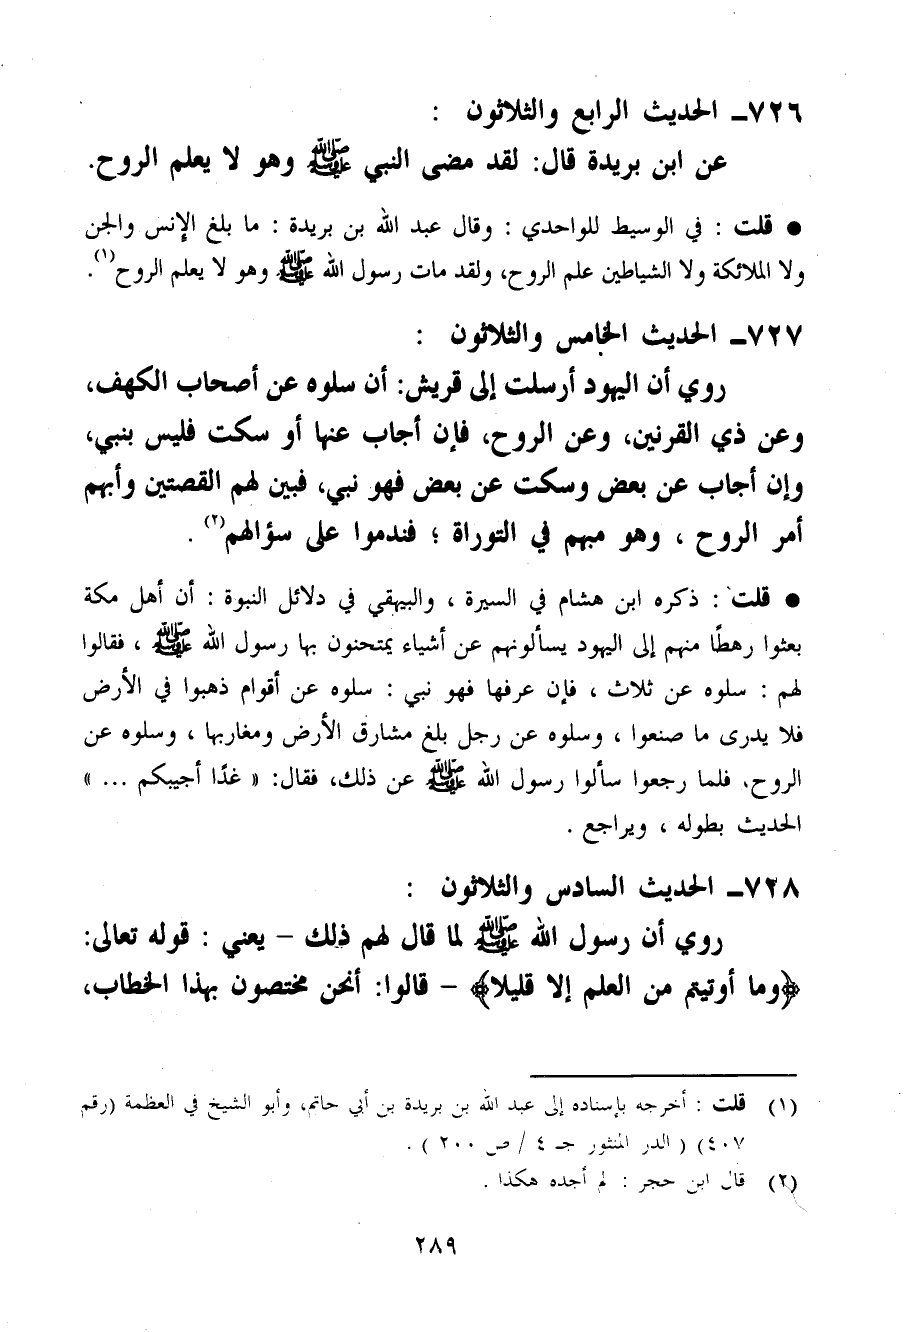 ٧٢٦ـ الحديث الرابع والثلاثون :
عن ابن بريدة قال: لقد مضى النبي ﷺ وهو لا يعلم الروح.
● قلت : في الوسيط للواحدي : وقال عبد الله بن بريدة : ما بلغ الإنس والجن
ولا الملائكة ولا الشياطين علم الروح، ولقد مات رسول الله ﷺ وهو لا يعلم الروح(١).
٧٢٧ـ الحديث الخامس والثلاثون :
روي أن اليهود أرسلت إلى قريش: أن سلوه عن أصحاب الكهف،
وعن ذي القرنين، وعن الروح، فإن أجاب عنها أو سكت فليس بنبي،
وإن أجاب عن بعض وسكت عن بعض فهو نبي، فبين لهم القصتين وأبهم
أمر الروح ، وهو مبهم في التوراة ؛ فندموا على سؤالهم(٢) .
● قلت : ذكره ابن هشام في السيرة ، والبيهقي في دلائل النبوة : أن أهل مكة
بعثوا رهطًا منهم إلى اليهود يسألونهم عن أشياء يمتحنون بها رسول الله ﷺ ، فقالوا
لهم : سلوه عن ثلاث ، فإن عرفها فهو نبي : سلوه عن أقوام ذهبوا في الأرض
فلا يدرى ما صنعوا ، وسلوه عن رجل بلغ مشارق الأرض ومغاربها ، وسلوه عن
الروح، فلما رجعوا سألوا رسول الله ﷺ عن ذلك، فقال: « غدًا أجيبكم ... »
الحديث بطوله ، ويراجع .
٧٢٨ـ الحديث السادس والثلاثون :
روي أن رسول الله ﷺ لما قال لهم ذلك – يعني : قوله تعالى:
﴿وما أوتيتم من العلم إلا قليلا﴾ – قالوا: أنحن مختصون بهذا الخطاب،
(١) قلت : أخرجه بإسناده إلى عبد الله بن بريدة بن أبي حاتم، وأبو الشيخ في العظمة (رقم
٤٠٧) ( الدر المنثور جـ ٤ / ص ٢٠٠ ) .
(٢) قال ابن حجر : لم أجده هكذا .
٢٨٩